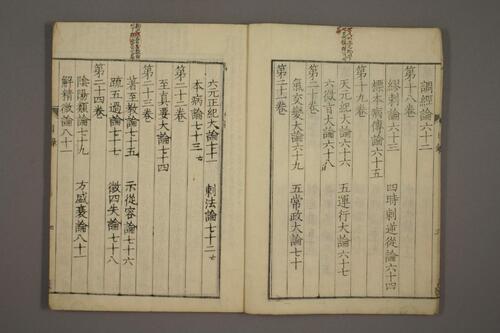 調經論六十二
第十八卷
繆刺論六十三　四時刺逆從論六十四
標本病傳論六十五
第十九卷
天元紀大論六十六　五運行大論六十七
六微旨大論六十八
第二十卷
氣交變大論六十九　五常政大論七十
第二十一卷
六元正紀大論七十一　刺法論七十二
本病論七十三
第二十二卷
至真要大論七十四
第二十三卷
著至教論七十五　示從容論七十六
疏五過論七十七　徵四失論七十八
第二十四卷
陰陽類論七十九　方盛衰論八十
解精微論八十一